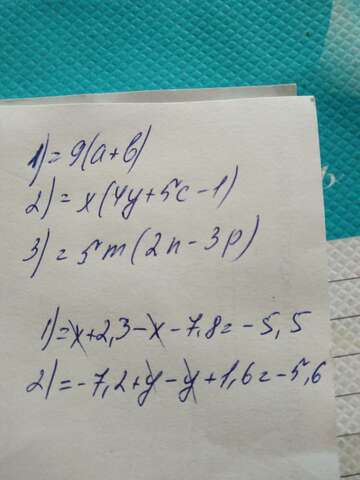 1) = 9(a+b)
2) = x(4y+5c-1)
3) = 5m(2n-3p)
1) = x+2,3-x-7,8=-5,5
2) = -7,2+y-y+1,6=-5,6